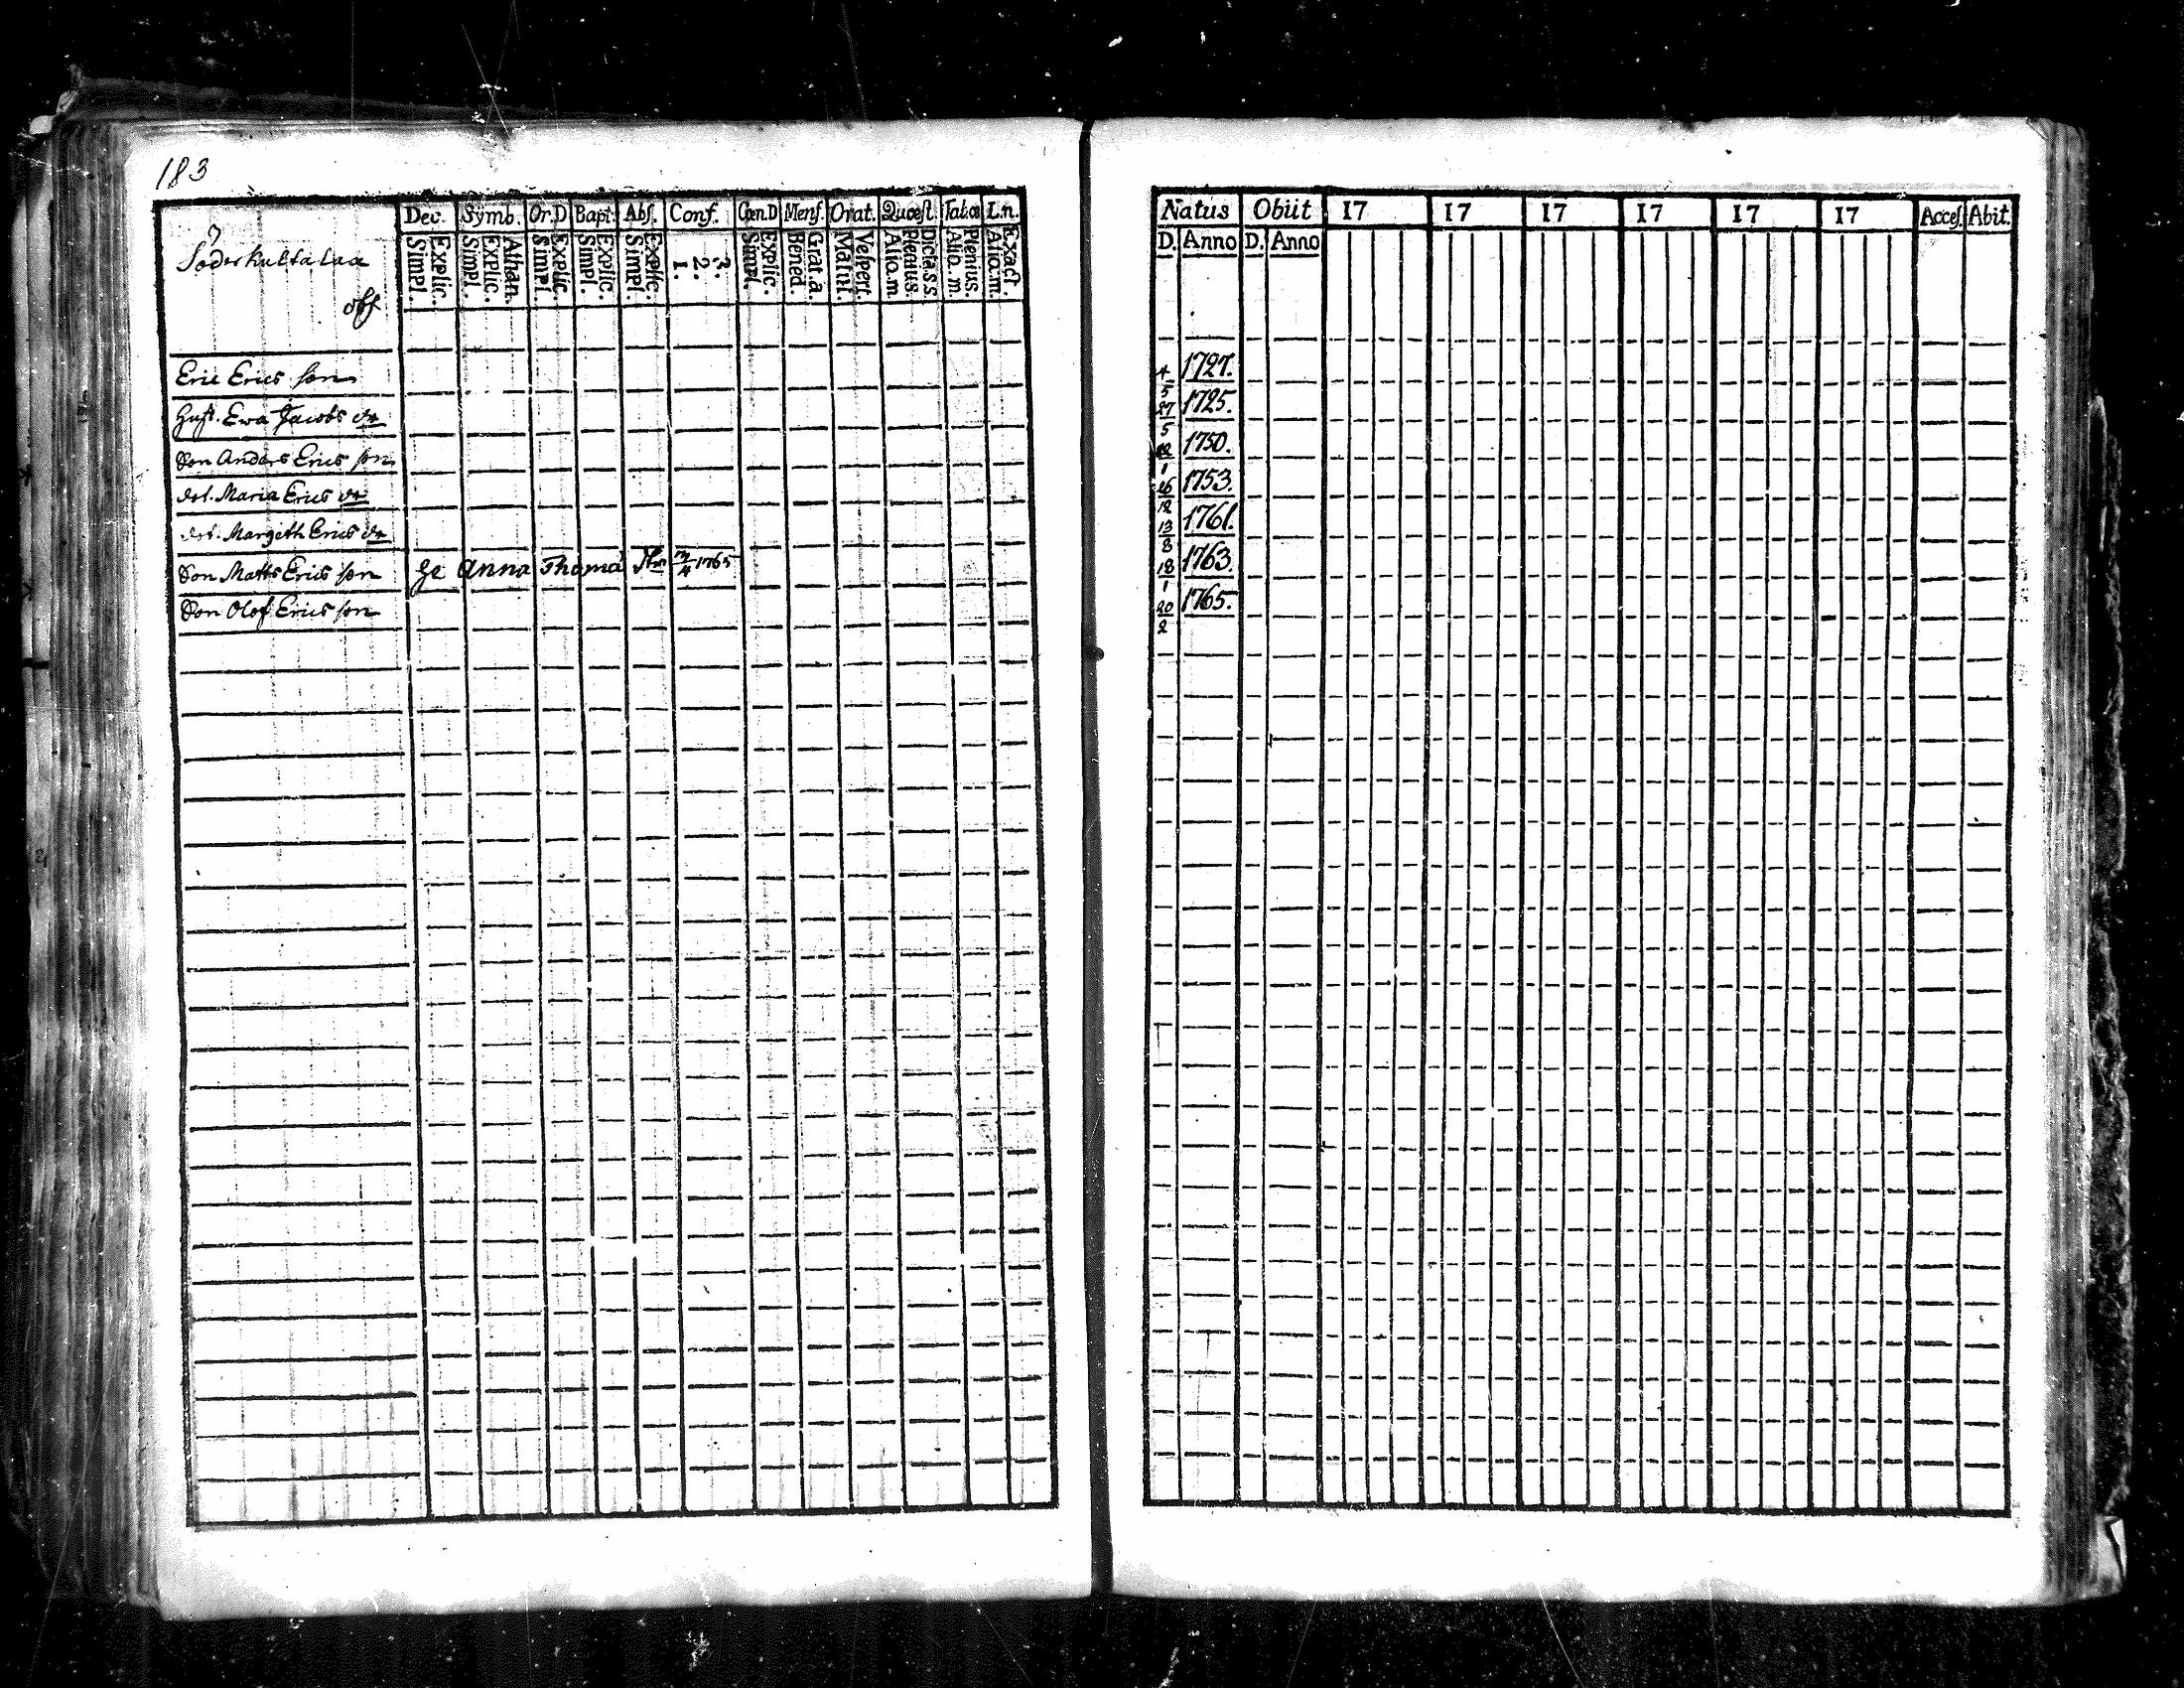 183
Söderkultalaa
off
Dec. Symb. Or.D Bapt. Abs. Conf. Cœn.D Mens. Orat. Quœst. Tab.œ L.n.
Simpl. Explic. Simpl. Explic. Athan. Simpl. Explic. Simpl. Explic. Simpl. Explic. 1. 2. 3. Simpl. Explic. Bened. Grat. a. Matut. Vespert. Alio. m. Plenius. Dicta. s.s. Alio. m. Plenius. Alio. m. Exact.
Eric Erics son
Hust. Ewa Jacobs dr
Son Anders Erics son
dot. Maria Erics dr
dot. Margeth Erics dr
Son Matts Erics son Anna Thoma 1765
Son Olof Erics son
Natus Obiit 17 17 17 17 17 17 Acces. Abit.
D. Anno D. Anno
4/5 1727.
27/5 1725.
1750.
26/12 1753.
13/8 1761.
18/1 1763.
20/2 1765.